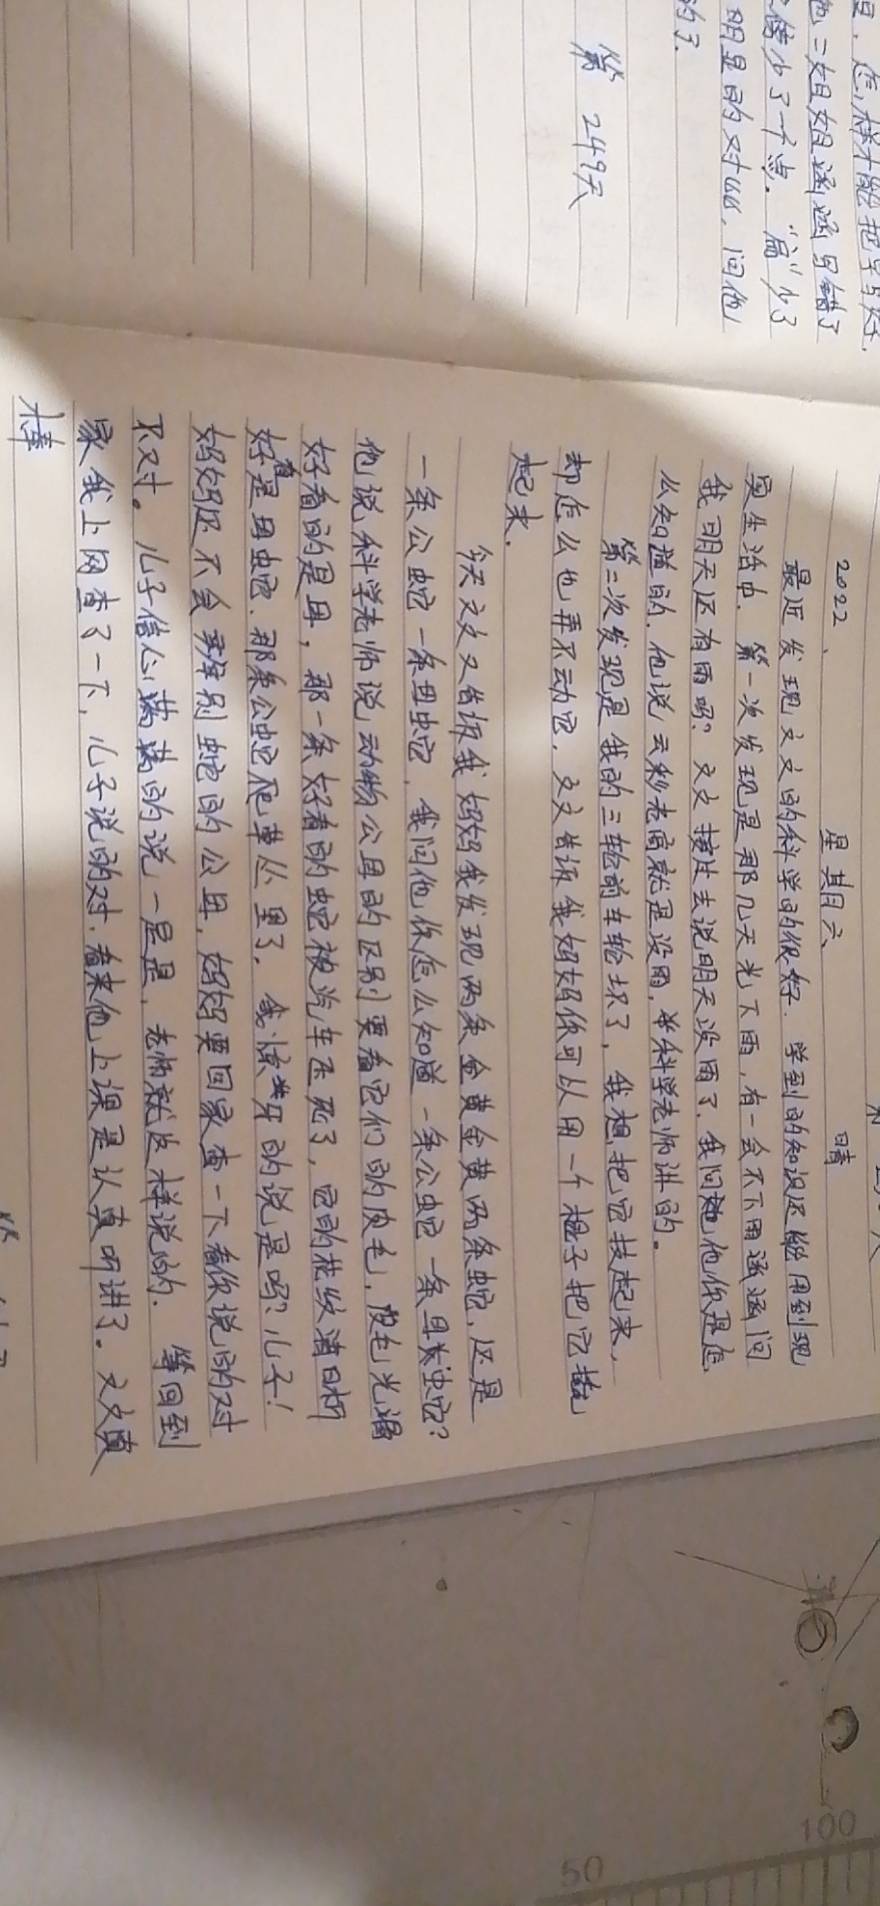 怎样才能把字写好.
他二姐姐涵涵写错了
少了一个点.“高”少了
明显的对一一,问他
的了.
第 249天
2022、 星期六、 晴
最近发现文文的科学的很好.学到的知识还能用到现
实生活中.第一次发现是那几天光下雨,有一会不下雨涵涵问
我明天还有雨吗?文文接过去说明天没雨了.我问他你是怎
么知道的.他说云彩老高就是没雨,科学老师讲的。
第二次发现是我的三轮前车轮坏了,我想把它扶起来,
却怎么也弄不动它.文文告诉我妈妈你可以用一个棍子把它撬
起来.
今天文文又告诉我妈妈我发现两条金黄金黄两条蛇,还是
一条公蛇一条母蛇,我问他你怎么知道一条公蛇一条母蛇?
他说科学老师说动物公母的区别要看它们的皮毛,皮毛光滑
好看的是母,那一条好看的蛇被汽车压死了,它的花纹清晰
好看是母蛇.那条公蛇爬草丛里了.我惊讶的说是吗?儿子!
妈妈还不会辨别蛇的公母,妈妈要回家查一下看你说的对
不对。儿子信心满满的说一定是,老师就这样说的.等回到
家我上网查了一下,儿子说的对.看来他上课是认真听讲了。文文真
棒
50
100